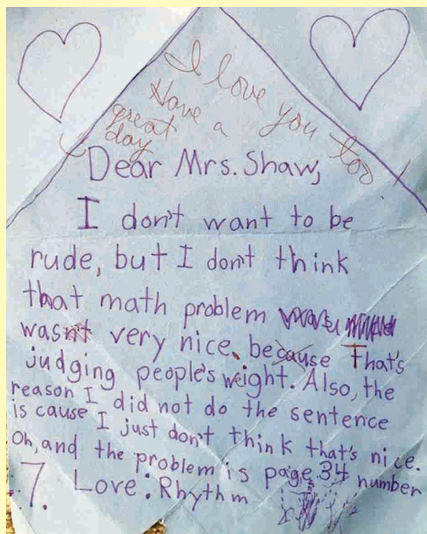 I love you too!
Have a
great
day
Dear Mrs. Shaw,
I don't want to be
rude, but I don't think
that math problem
wasn't very nice. because That's
judging people's weight. Also, the
reason I did not do the sentence
is cause I just don't think that's nice.
Oh, and the problem is page 34 number
7. Love: Rhythm